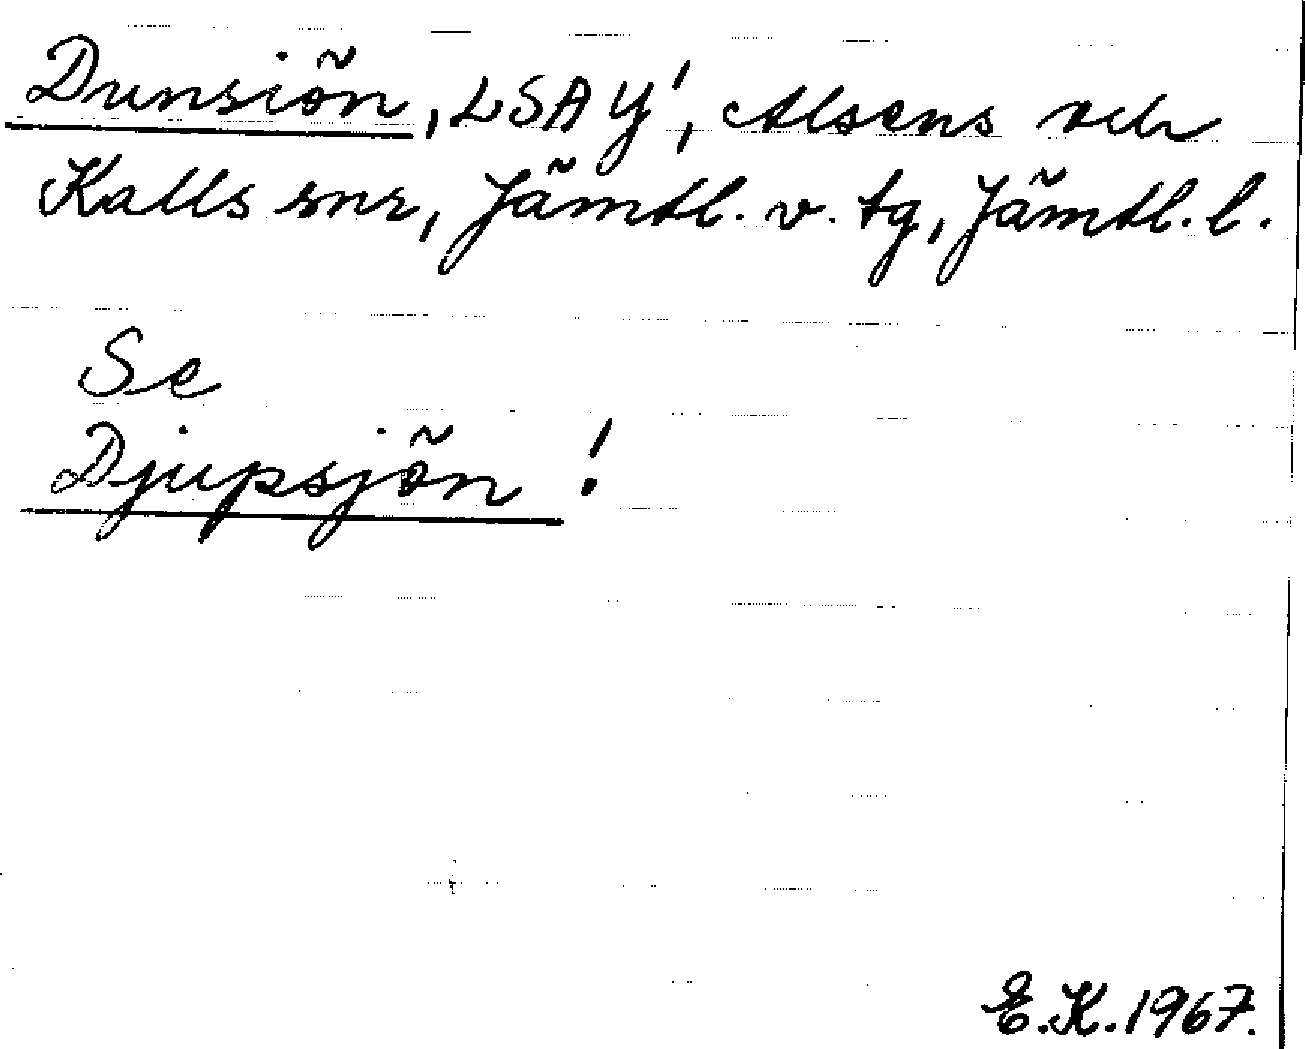 Dunsiön, LSA Y', Alsens och
Kalls snr, Jämtl. v. tg, Jämtl. l.
Se
Djupsjön!
E.K. 1967.